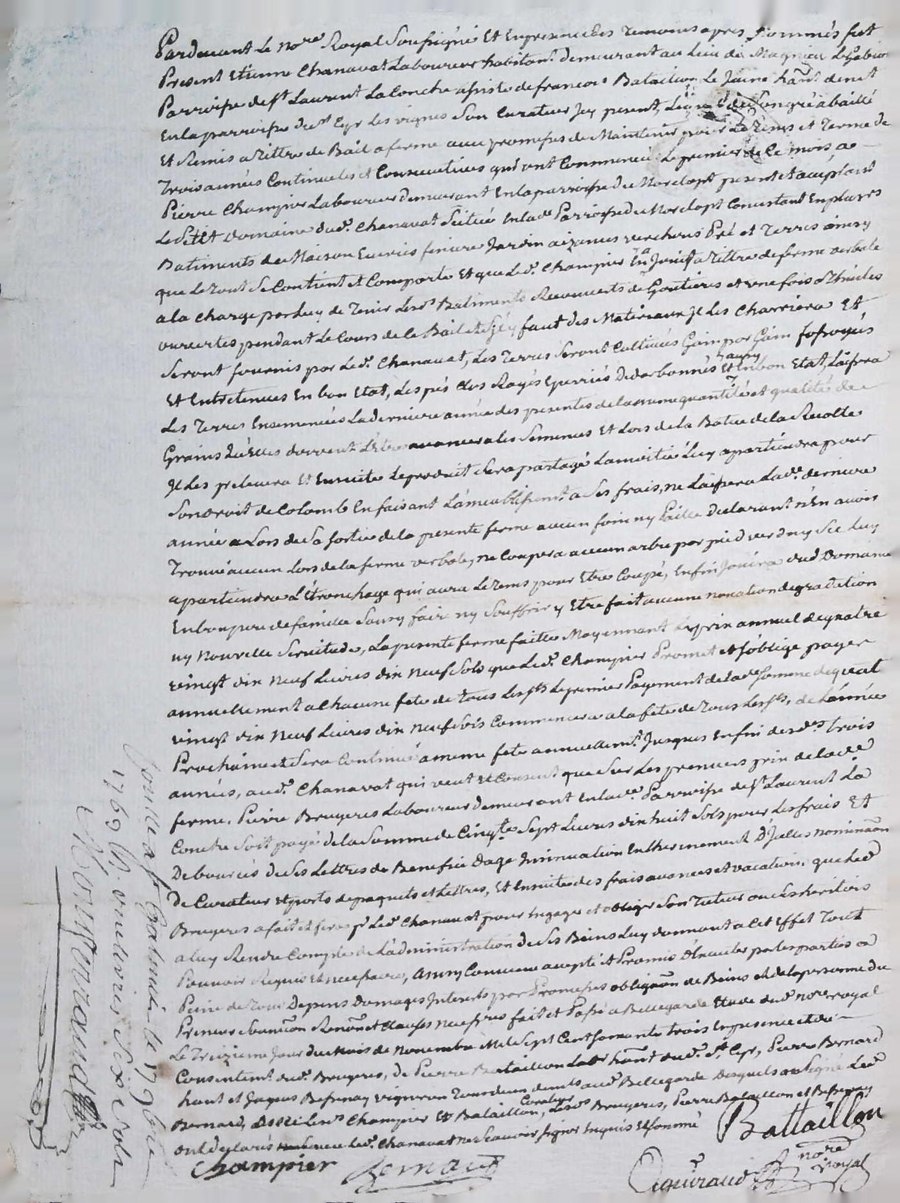 Pardevant Le no.re Royal Soussigné Et En presence des Temoins apres nommés fut
Present Etienne Chanavat Laboureur habitan.t demeurant au Lieu de Magnieu Le Gabion
Parroisse de S.t Laurent La Conche assisté de francois Bataillon Le Jeune
En la parroisse de S.t Cyr Les vignes Son Curateur Icy present, Lequel de Son gré a baillé
Et Remis a Tittre de Bail a ferme avec promesses de Maintenir pour Le Tems et Terme de
Trois années Continuelles et Consecutives qui ont Commencé Le premier de Ce mois, a
Pierre Champier Laboureur demeurant En la parroisse de present et acceptant
Le Petit Domaine dud.t Chanavat Scitué En lad.e Parroisse de Consistant En plusieurs
Batiments de Maison Ecuries feniere Jardin aizances vercheres Pré et Terres ainsy
que Le Tout Se Contient et Comporte Et que Led.t Champier En a Jouit a Tittre de ferme verbale
a la Charge par Luy de Tenir Lesd.s Batiments Recouverts de Goutieres et une fois
ouvertes pendant Le Cours de Le Bail Et S'il y faut des Materiaux Il Les Charriera Et
Seront fournis par Led.t Chanavat, Les Terres Seront Cultivées Gain par Gain fossoyés
Et Entretenues En bon Etat, Les prés Clos Rayés de darbonnes Et aussy En bon Etat, Laissera
Les Terres Ensemencées La derniere année des presentes de la meme quantité et qualité de
Grains doivent L'etre avancera les Semences Et Lors de la Batue de la Recolte
Il Les prelevera Et Ensuite Le produit Sera partagé La moitié Luy apartiendra pour
Son droit de Colomb En faisant a Ses frais, ne Laissera Lad.e derniere
année a Lors de Sa Sortie de la presente ferme aucun foin ny paille declarant n'En avoir
Trouvé aucun Lors de la ferme verbale, ne Coupera aucun arbre par pied verd ny Sec Luy
apartiendra L'Etronchage qui aura Le tems pour Etre Coupé, Enfin Jouira dud.t Domaine
En bon pere de famille Sans y faire ny Souffrir y Etre fait aucune novation degradation
ny Nouvelle Servitude, La presente ferme faitte Moyennant Le prix annuel de quatre
vingt dix Neuf Livres dix Neuf Sols que Led.t Champier Promet et s'oblige payer
annuellement a Chacune fête de Tous Les S.ts Le premier Payement de lad.e Somme de quatre
vingt dix Neuf Livres dix neuf Sols Commencera a la fête de Tous Les S.ts de L'année
Prochaine et Sera Continué a meme fête annuellem.t Jusques En fin desd.es Trois
années, aud.t Chanavat qui veut et Consent que Sur Les premiers prix de lad.e
ferme, Pierre Bruyeres Laboureur demeurant En lad.e Parroisse de S.t Laurent La
Conche Soit payé de la Somme de Cinq.te Sept Livres dix huit Sols pour Les frais Et
Deboursés de Ses Lettres de Benefice d'age Insinuation Entherinement D'Icelles nominaon
De Curateur et ports de paquets et Lettres, Et Ensuite des frais avances et vacations, que Led.t
Bruyeres a fait et feras p.r Led.t Chanavat pour Engager et obliger Son Tuteur ou Ses heritiers
a Luy Rendre Compte de L'administration de Ses Biens Luy donnant a Cet Effet Tout
Pouvoir Requis et necessaire, Ainsy Convenu accepté et Promis par les parties a
Peine de Tous Depens Domages Interets par Promesses obligaon de Biens et de la personne du
Preneur Soumison Renon et Clauses necess.res fait et Passé a Bellegarde Etude dud.t no.re royal
Le Treizieme Jour du Mois de Novembre Mil Sept Cent Soixante trois En presence et du
Consentem.t dud.t Bruyeres, de Pierre Bataillon Lab.r hant dud.t S.t Cyr, Pierre Bernard
hant et Jaques Besseney vigneron Tous deux dem.ts aud.t Bellegarde Desquels ont Signé Led.t
Bernard, Led.t Champier Et Bataillon Curateur, Lesd.s Bruyeres, Pierre Bataillon et Besseney
ont declarés Led.t Chanavat ne Scavoir signer Enquis et Sommé
Battaillon
Champier Bernard
no.re royal
1763